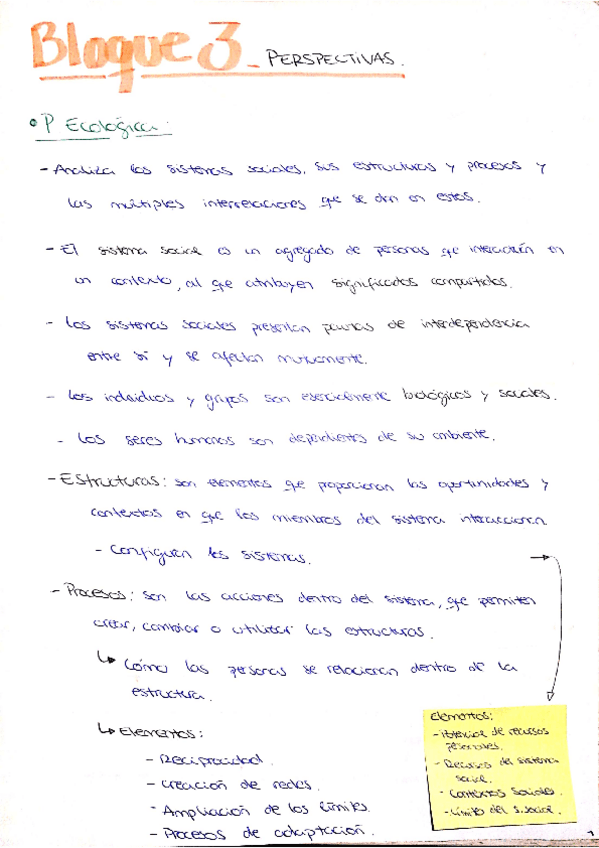 Bloque 3 - PERSPECTIVAS.
• P Ecológica:
- Analiza los sistemas sociales, sus estructuras y procesos y
las múltiples interrelaciones que se dan en estos.
- El sistema social es un agregado de personas que interactúan en
un contexto, al que atribuyen significados compartidos.
- Los sistemas sociales presentan pautas de interdependencia
entre sí y se afectan mutuamente.
- Los individuos y grupos son esencialmente biológicos y sociales.
- Los seres humanos son dependientes de su ambiente.
- Estructuras: son elementos que proporcionan las oportunidades y
contextos en que los miembros del sistema interaccionan
- Configuran los sistemas. →
- Procesos: son las acciones dentro del sistema, que permiten
crear, cambiar o utilizar las estructuras.
↳ Cómo las personas se relacionan dentro de la
estructura.
↳ Elementos:
- Reciprocidad.
- Creación de redes.
- Ampliación de los límites.
- Procesos de adaptación.
Elementos:
- Potencial de recursos
personales.
- Recursos del sistema
social.
- Contextos sociales.
- Límites del s. social.